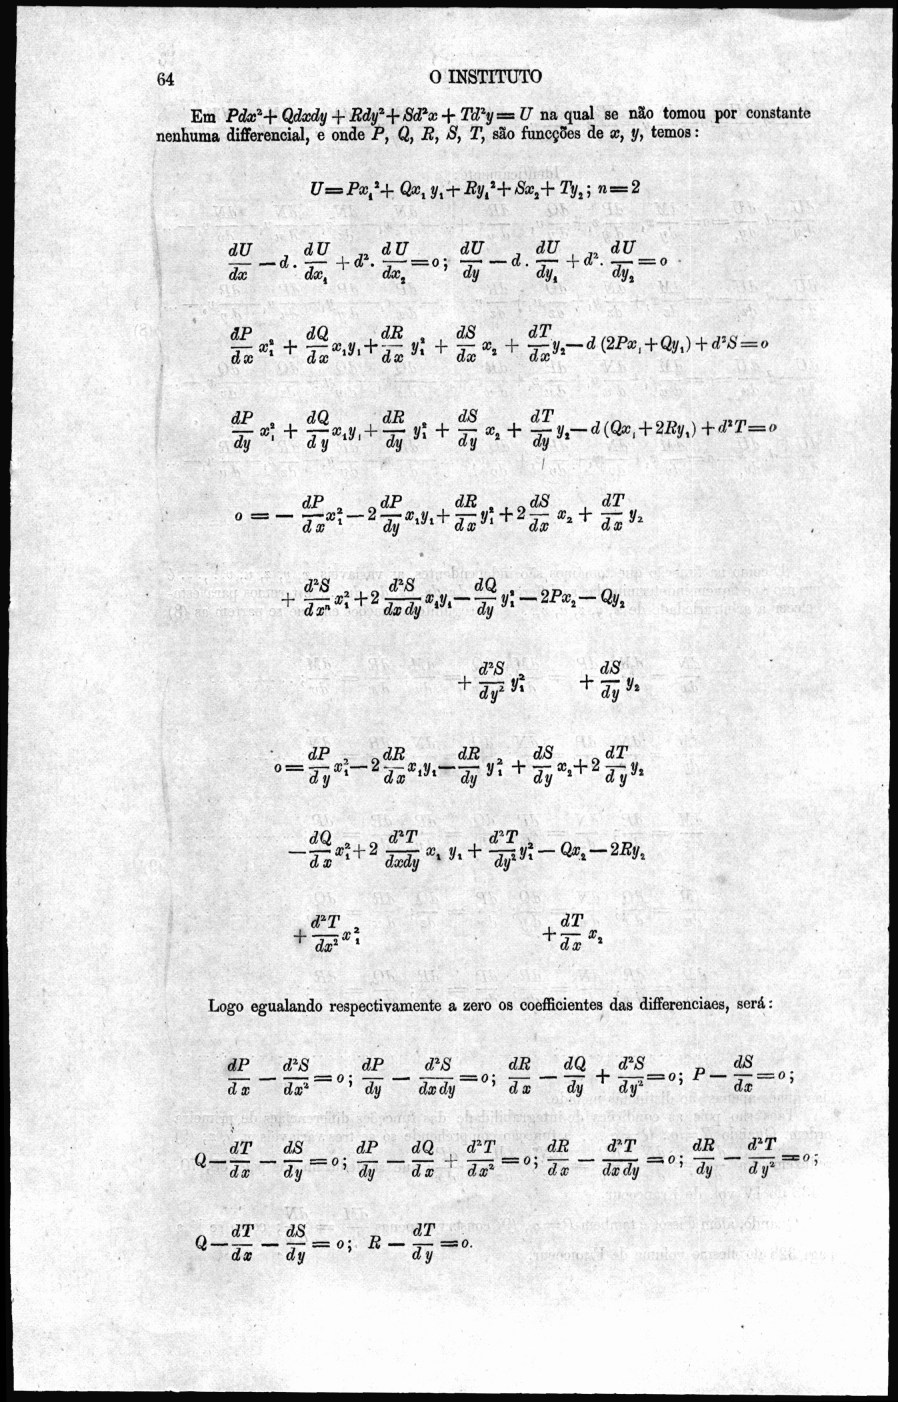 64 O INSTITUTO
Em Pdx²+ Qdxdy + Rdy²+ Sd²x + Td²y = U na qual se não tomou por constante
nenhuma differencial, e onde P, Q, R, S, T, são funcções de x, y, temos:
U=Px₁²+ Qx₁ y₁+ Ry₁²+ Sx₂+ Ty₂; n=2
dU/dx — d . dU/dx₁ + d². dU/dx₂ = o; dU/dy — d . dU/dy₁ + d². dU/dy₂ = o
dP/dx x₁² + dQ/dx x₁y₁ + dR/dx y₁² + dS/dx x₂ + dT/dx y₂ — d (2Px₁ + Qy₁) + d²S = o
dP/dy x₁² + dQ/dy x₁y₁ + dR/dy y₁² + dS/dy x₂ + dT/dy y₂ — d (Qx₁ + 2Ry₁) + d²T = o
o = — dP/dx x₁² — 2 dP/dy x₁y₁ + dR/dx y₁² + 2 dS/dx x₂ + dT/dx y₂
+ d²S/dxⁿ x₁² + 2 d²S/dxdy x₁y₁ — dQ/dy y₁² — 2Px₂ — Qy₂
+ d²S/dy² y₁² + dS/dy y₂
o = dP/dy x₁² — 2 dR/dx x₁y₁ — dR/dy y₁² + dS/dy x₂ + 2 dT/dy y₂
— dQ/dx x₁² + 2 d²T/dxdy x₁ y₁ + d²T/dy² y₁² — Qx₂ — 2Ry₂
+ d²T/dx² x₁² + dT/dx x₂
Logo egualando respectivamente a zero os coefficientes das differenciaes, será:
dP/dx — d²S/dx² = o; dP/dy — d²S/dxdy = o; dR/dx — dQ/dy + d²S/dy² = o; P — dS/dx = o;
Q — dT/dx — dS/dy = o; dP/dy — dQ/dx + d²T/dx² = o; dR/dx — d²T/dxdy = o; dR/dy — d²T/dy² = o;
Q — dT/dx — dS/dy = o; R — dT/dy = o.